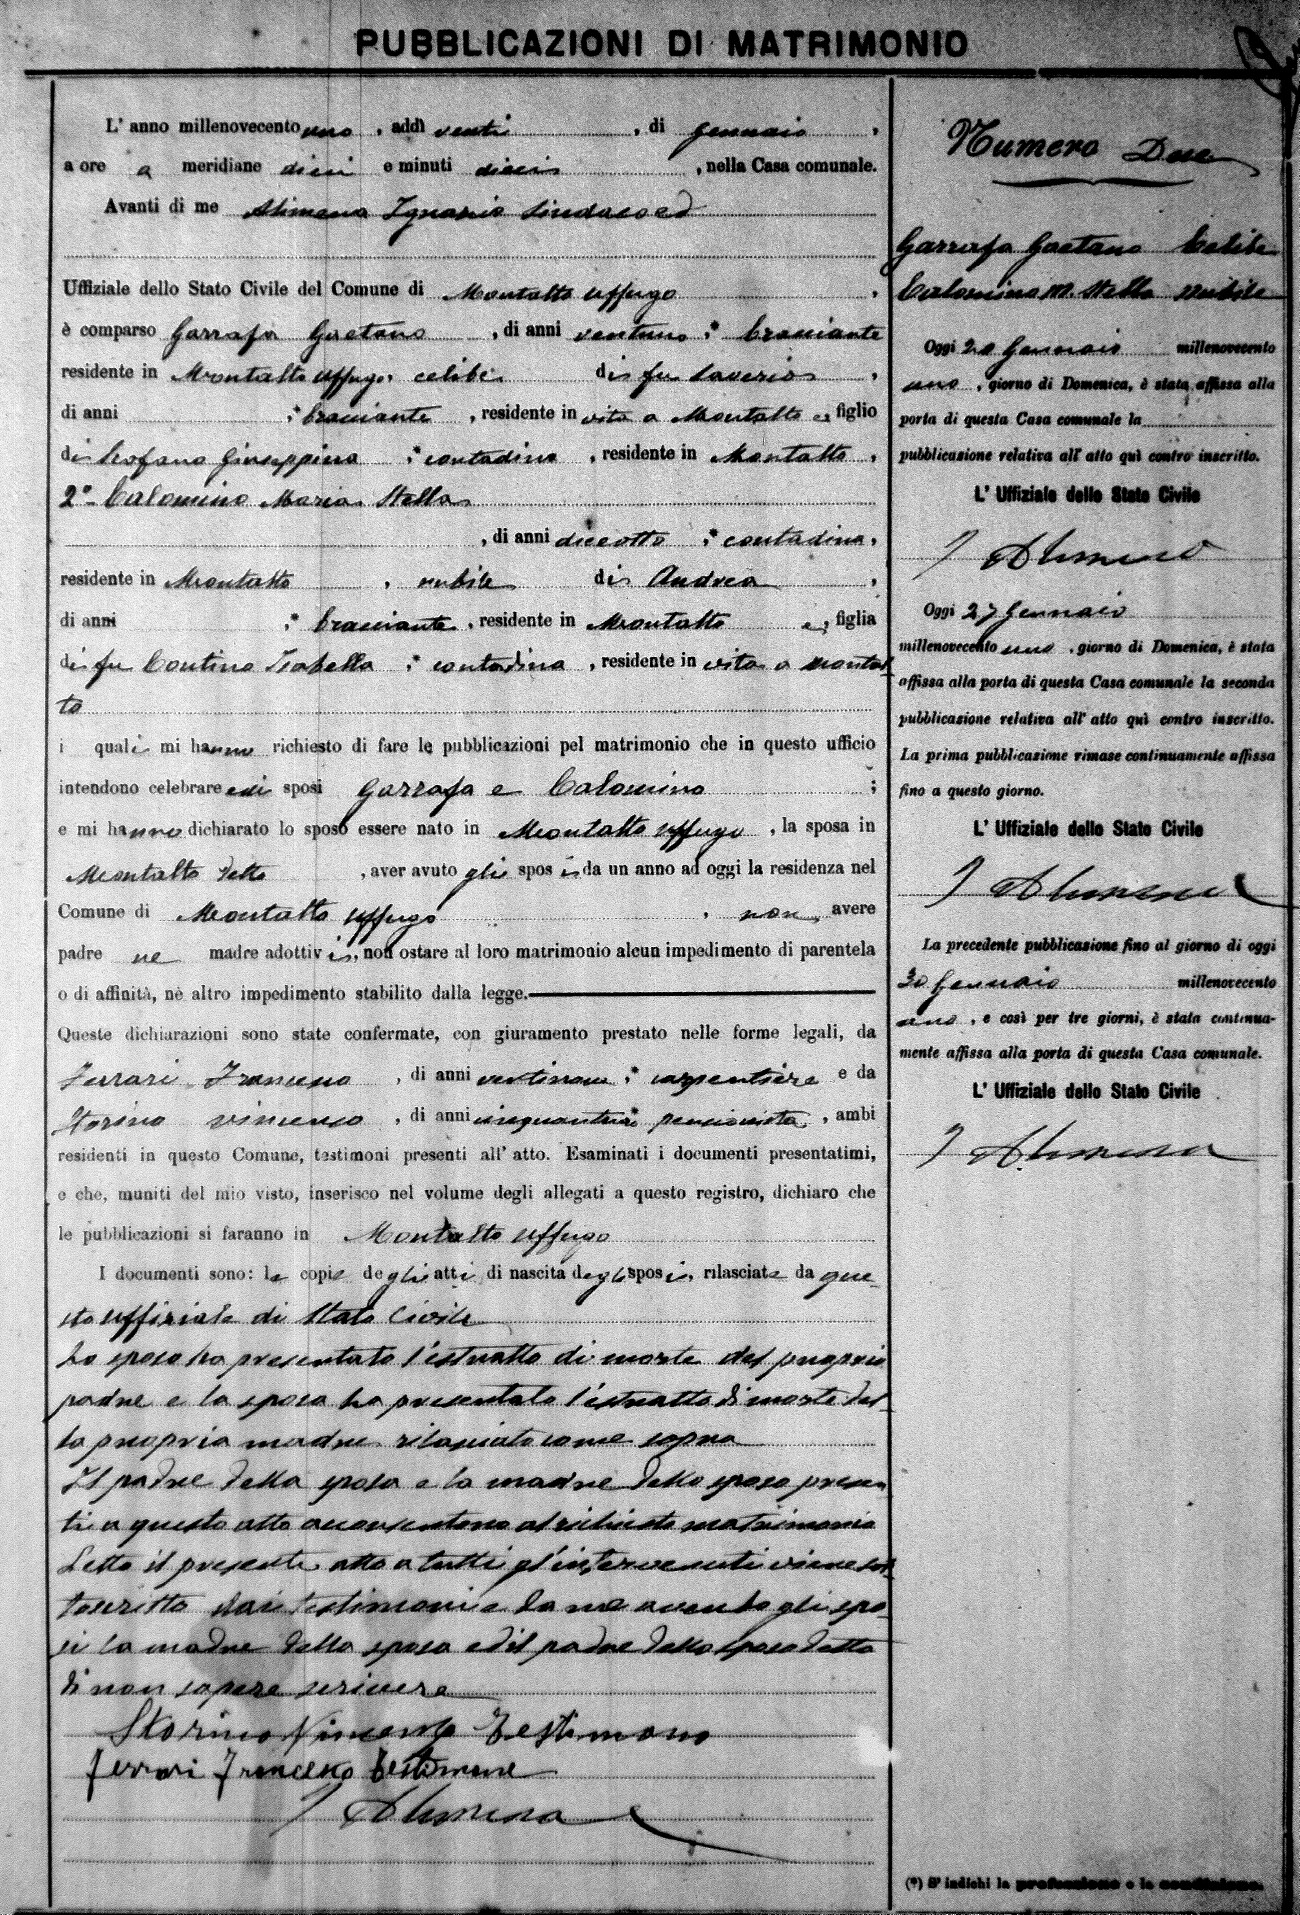 PUBBLICAZIONI DI MATRIMONIO
L'anno millenovecento uno, addì venti, di gennaio,
a ore a meridiane dieci e minuti dieci, nella Casa comunale.
Avanti di me Alimena Ignazio Sindaco ed
Uffiziale dello Stato Civile del Comune di Montalto Uffugo,
è comparso Garrafa Gaetano, di anni ventuno, * bracciante
residente in Montalto Uffugo, celibe di fu Saverio,
di anni , * bracciante, residente in vita a Montalto e, figlio
di Giuseppina, * contadina, residente in Montalto,
2º Calomino Maria Stella
, di anni diciotto, * contadina,
residente in Montalto, nubile di Andrea,
di anni , * bracciante, residente in Montalto e, figlia
di fu Contino Isabella, * contadina, residente in vita a Montal
to
i quali mi hanno richiesto di fare le pubblicazioni pel matrimonio che in questo ufficio
intendono celebrare essi sposi Garrafa e Calomino;
e mi hanno dichiarato lo sposo essere nato in Montalto Uffugo, la sposa in
Montalto detto, aver avuto gli sposi da un anno ad oggi la residenza nel
Comune di Montalto Uffugo, non avere
padre ne madre adottivi, non ostare al loro matrimonio alcun impedimento di parentela
o di affinità, nè altro impedimento stabilito dalla legge.
Queste dichiarazioni sono state confermate, con giuramento prestato nelle forme legali, da
Ferrari Francesco, di anni ventinove, * carpentiere e da
Storino Vincenzo, di anni * pensionista, ambi
residenti in questo Comune, testimoni presenti all'atto. Esaminati i documenti presentatimi,
e che, muniti del mio visto, inserisco nel volume degli allegati a questo registro, dichiaro che
le pubblicazioni si faranno in Montalto Uffugo
I documenti sono: le copie degli atti di nascita degli sposi, rilasciate da que
sto uffiziale di Stato Civile
Lo sposo ha presentato l'estratto di morte del proprio
padre e la sposa ha presentato l'estratto di morte del
la propria madre rilasciato come sopra
Il padre della sposa e la madre dello sposo presen
ti a questo atto acconsentono al richiesto matrimonio
Letto il presente atto a tutti gl'intervenuti viene sot
toscritto dai testimoni e da me avendo gli spo
si la madre dello sposo ed il padre della sposa detto
di non sapere scrivere
Storino Vincenzo Testimono
Ferrari Francesco testimone
I Alimena
Numero Due
Garrafa Gaetano Celibe
Calomino M. Stella nubile
Oggi 20 Gennaio millenovecento
uno, giorno di Domenica, è stata affissa alla
porta di questa Casa comunale la
pubblicazione relativa all'atto quì contro inscritto.
L'Uffiziale dello Stato Civile
I Alimena
Oggi 27 Gennaio
millenovecento uno, giorno di Domenica, è stata
affissa alla porta di questa Casa comunale la seconda
pubblicazione relativa all'atto quì contro inscritto.
La prima pubblicazione rimase continuamente affissa
fino a questo giorno.
L'Uffiziale dello Stato Civile
I Alimena
La precedente pubblicazione fino al giorno di oggi
30 Gennaio millenovecento
uno, e così per tre giorni, è stata continua-
mente affissa alla porta di questa Casa comunale.
L'Uffiziale dello Stato Civile
I Alimena
(*) S'indichi la professione o la condizione.